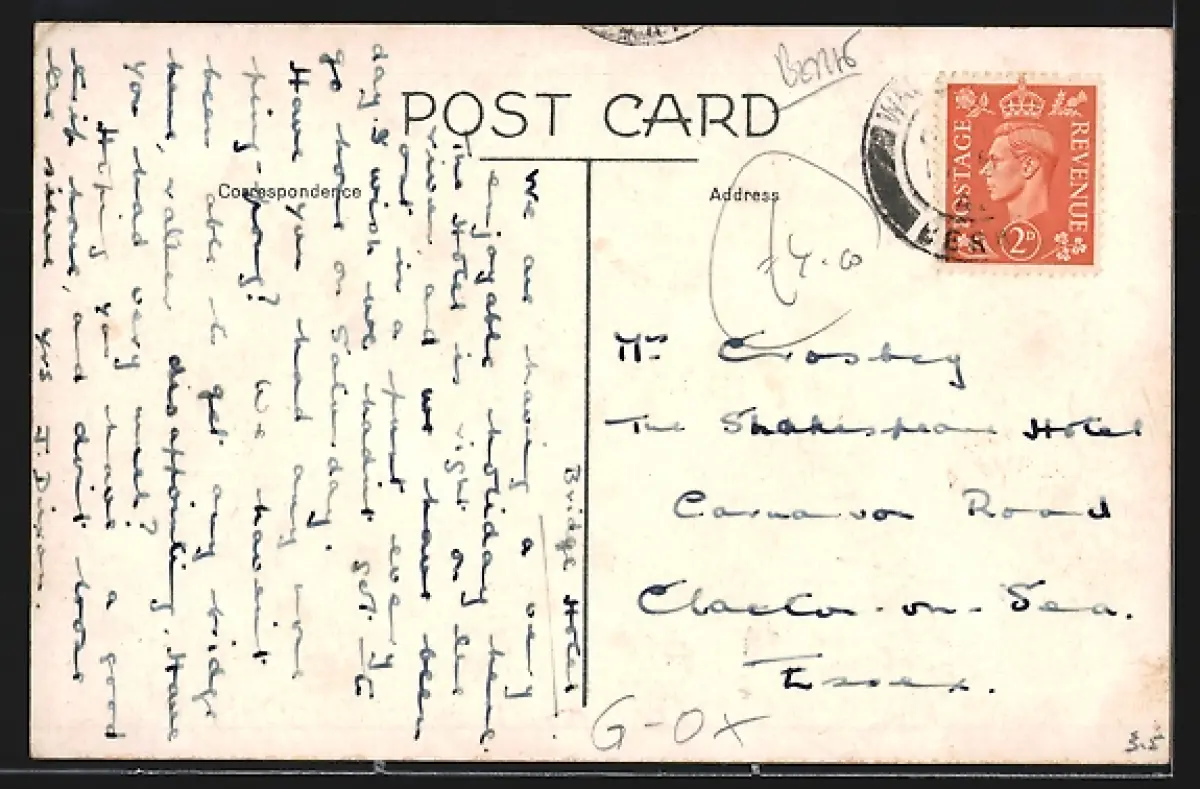 BERKS
POST CARD
Correspondence
Address
POSTAGE
REVENUE
2D
£4.00
Mrs Crosbey
The Shakespeare Hotel
Carnarvon Road
Clacton-on-Sea.
Essex.
G-OX
3.5
Bridge Hotel
We are having a very
enjoyable holiday here.
The Hotel is right on the
river and we have been
out in a punt every
day. I wish we hadn't got to
go home on Saturday.
Have you had any more
ping-pong? We haven't
been able to get any bridge
here, rather disappointing. Have
you had very much?
Hoping you have a good
trip home, and don't lose
yrs J. Dixon.